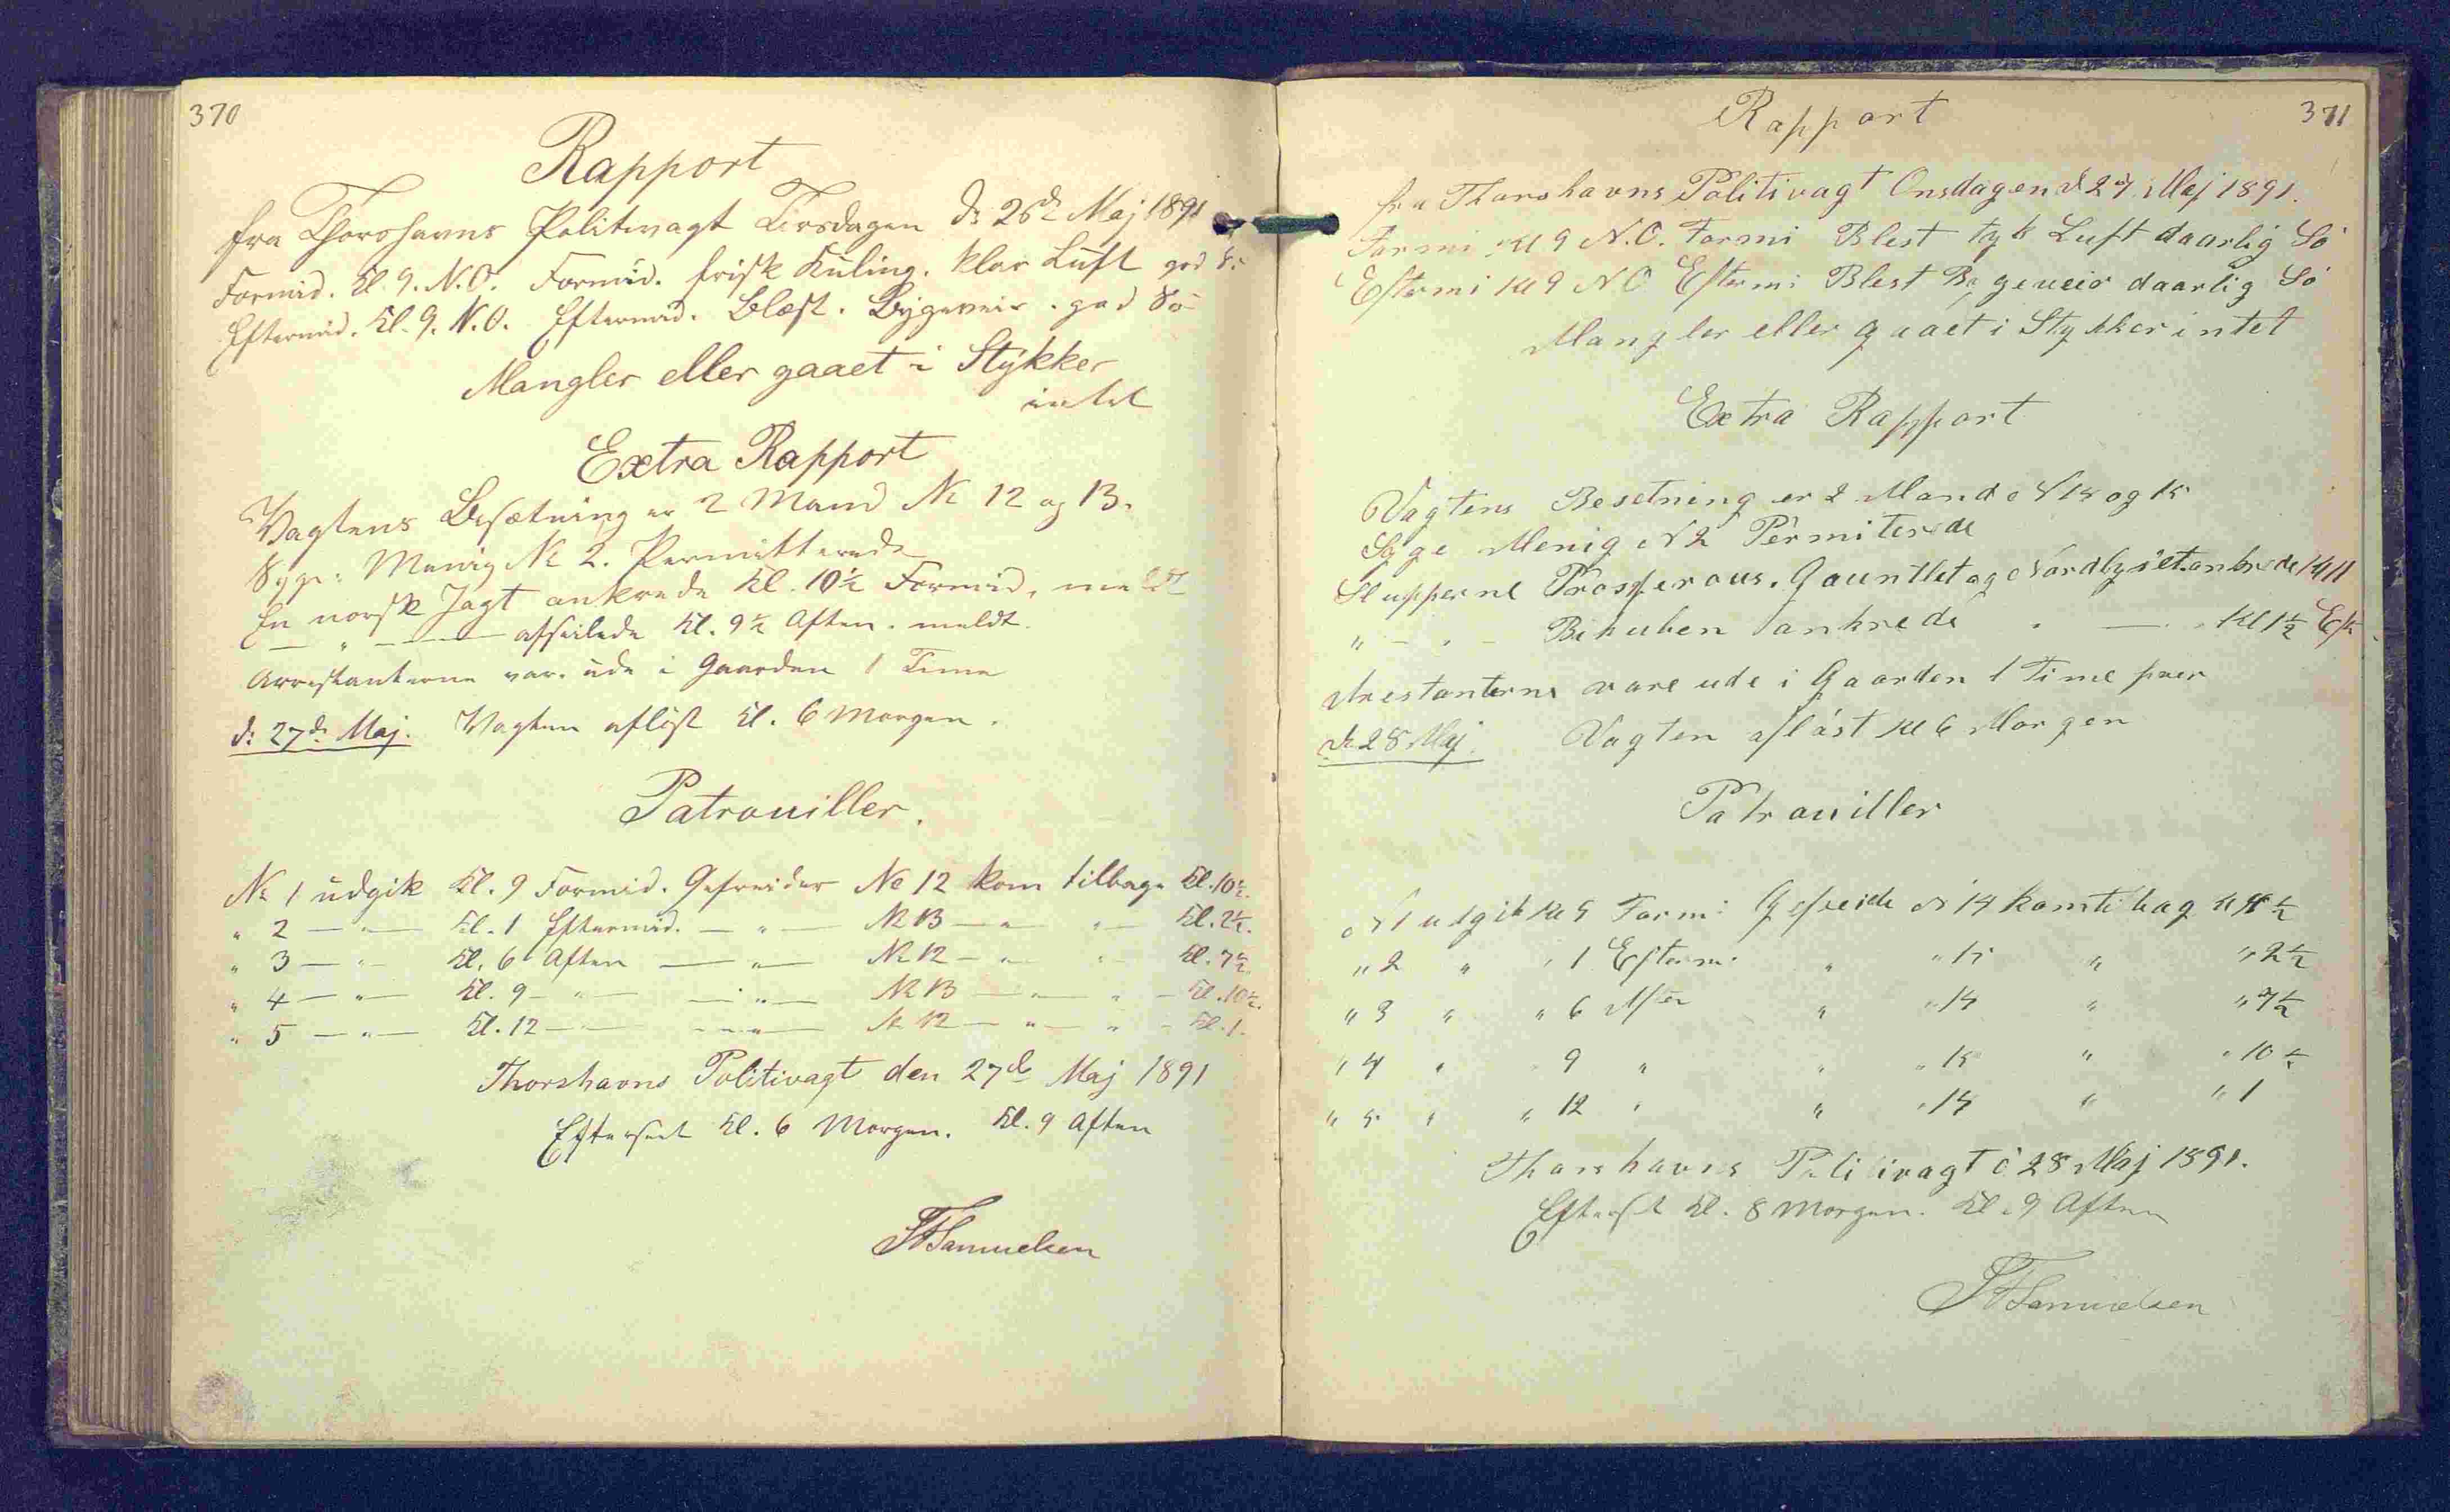 370
Rapport
fra Thorshavns Politivagt Tirsdagen d: 26de Maj 1891
Formid. Kl. 9. N.O. Formid. frisk Kuling. klar Luft god Sö
Eftermid. Kl. 9. N.O. Eftermid. Blæst. Bygeveir. god Sö
Mangler eller gaaet i Stykker
intet
Extra Rapport
Vagtens Besætning er 2 Mand No 12 og 13.
Syge: Menig No 2. Permitterede
En norsk Jagt ankrede Kl. 10½ Formid. meldt
— " — afseilede Kl. 9½ Aften. meldt.
Arrestanterne var ude i Gaarden 1 Time
d: 27de Maj. Vagten aflöst Kl. 6 Morgen.
Patrouiller.
No 1 udgik Kl. 9 Formid. Gefreider No 12 kom tilbage Kl. 10½.
" 2 — " — Kl. 1 Eftermid. — " — No 13 — " — " — Kl. 2½.
" 3 — " — Kl. 6 Aften — " — No 12 — " — " — Kl. 7½
" 4 — " — Kl. 9 — " — — " — No 13 — " — " — Kl. 10½.
" 5 — " — Kl. 12 — " — — " — No 12 — " — " — Kl. 1.
Thorshavns Politivagt den 27de Maj 1891
Efterseet Kl. 6 Morgen. Kl. 9 Aften
Samuelsen
371
Rapport
fra Thorshavns Politivagt Onsdagen d 27 Maj 1891.
Formi Kl 9 N.O. Formi Blest tyk Luft daarlig Sö
Eftermi Kl 9 NO Eftermi Blest Bygeveir daarlig Sö
Mangler eller gaaet i Stykker intet
Extra Rapport
Vagtens Besetning er 2 Mand N 14 og 15
Syge Menig N 2 Permiterede
Slupperne Prosperous. Gauntlet og Nordlyset. ankrede Kl 11
" - " - Bikuben ankrede " — " Kl 1½ Eft
Arestanterne vare ude i Gaarden 1 Time
d 28 Maj. Vagten aflöst Kl 6 Morgen
Patrouiller
N 1 udgik Kl 9 Formi: Gefreide N 14 kom tilbag
" 2 " " 1 Eftermi " " 15 " " 2½
" 3 " " 6 Aften " " 14 " " 7½
" 4 " " 9 " " " 15 " " 10½
" 5 " " 12 " " " 14 " " 1
Thorshavns Politivagt d 28 Maj 1891.
Efterset Kl. 8 Morgen. Kl. 9 Aften
Samuelsen